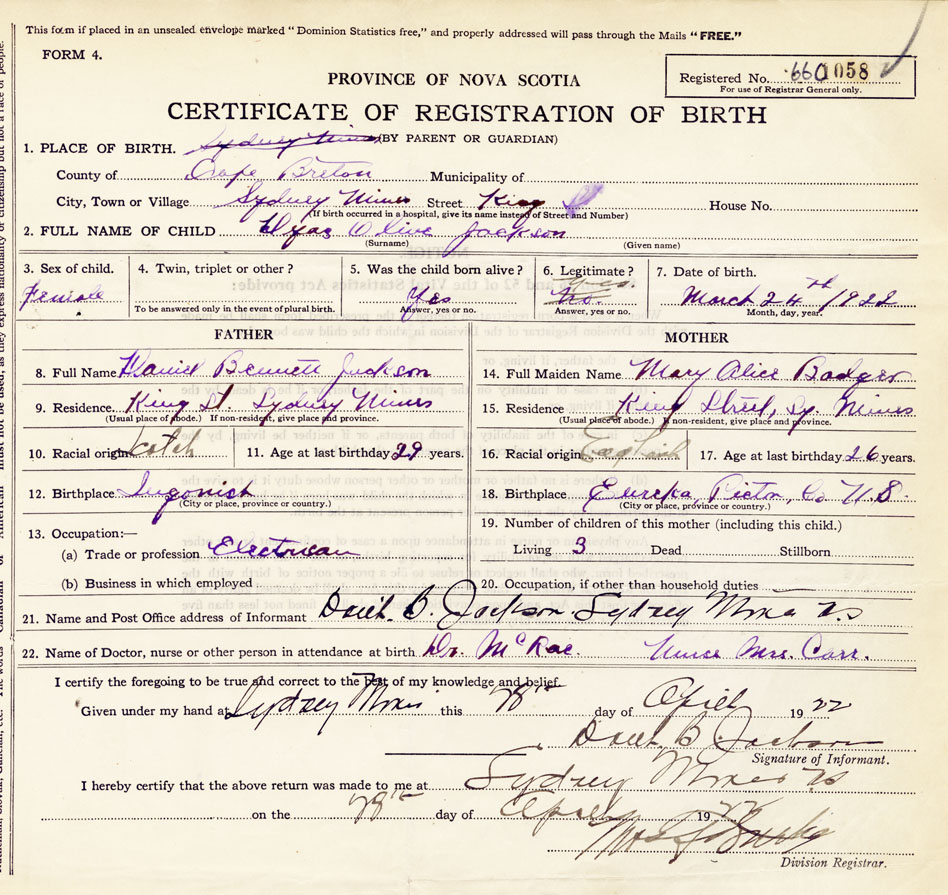 This form if placed in an unsealed envelope marked "Dominion Statistics free," and properly addressed will pass through the Mails "FREE."
FORM 4.
Registered No. 660 1058
For use of Registrar General only.
PROVINCE OF NOVA SCOTIA
CERTIFICATE OF REGISTRATION OF BIRTH
(BY PARENT OR GUARDIAN)
1. PLACE OF BIRTH. Sydney Mines
County of Cape Breton Municipality of
City, Town or Village Sydney Mines Street King St House No.
(If birth occurred in a hospital, give its name instead of Street and Number)
2. FULL NAME OF CHILD Olive Jackson
(Surname) (Given name)
3. Sex of child. 4. Twin, triplet or other? 5. Was the child born alive? 6. Legitimate? 7. Date of birth.
Female Yes Yes No. March 24th 1922
To be answered only in the event of plural birth. Answer, yes or no. Answer, yes or no. Month, day, year.
FATHER MOTHER
8. Full Name Daniel Bennett Jackson 14. Full Maiden Name Mary Alice Badger
9. Residence King St. Sydney Mines 15. Residence King Street, Sy. Mines
(Usual place of abode.) If non-resident, give place and province. (Usual place of abode.) If non-resident, give place and province.
10. Racial origin Scotch 11. Age at last birthday 29 years. 16. Racial origin English 17. Age at last birthday 26 years.
12. Birthplace Ingonish 18. Birthplace Eureka, Pictou, Co N.S.
(City or place, province or country.) (City or place, province or country.)
13. Occupation:— 19. Number of children of this mother (including this child.)
(a) Trade or profession Electrician Living 3 Dead Stillborn
(b) Business in which employed 20. Occupation, if other than household duties
21. Name and Post Office address of Informant Danl. B. Jackson Sydney Mines N.S
22. Name of Doctor, nurse or other person in attendance at birth Dr. McRae. Nurse Mrs. Carr.
I certify the foregoing to be true and correct to the best of my knowledge and belief.
Given under my hand at Sydney Mines this 28th day of April 1922
Danl. B. Jackson
Signature of Informant.
I hereby certify that the above return was made to me at Sydney Mines NS
on the 28th day of April 1922
Division Registrar.